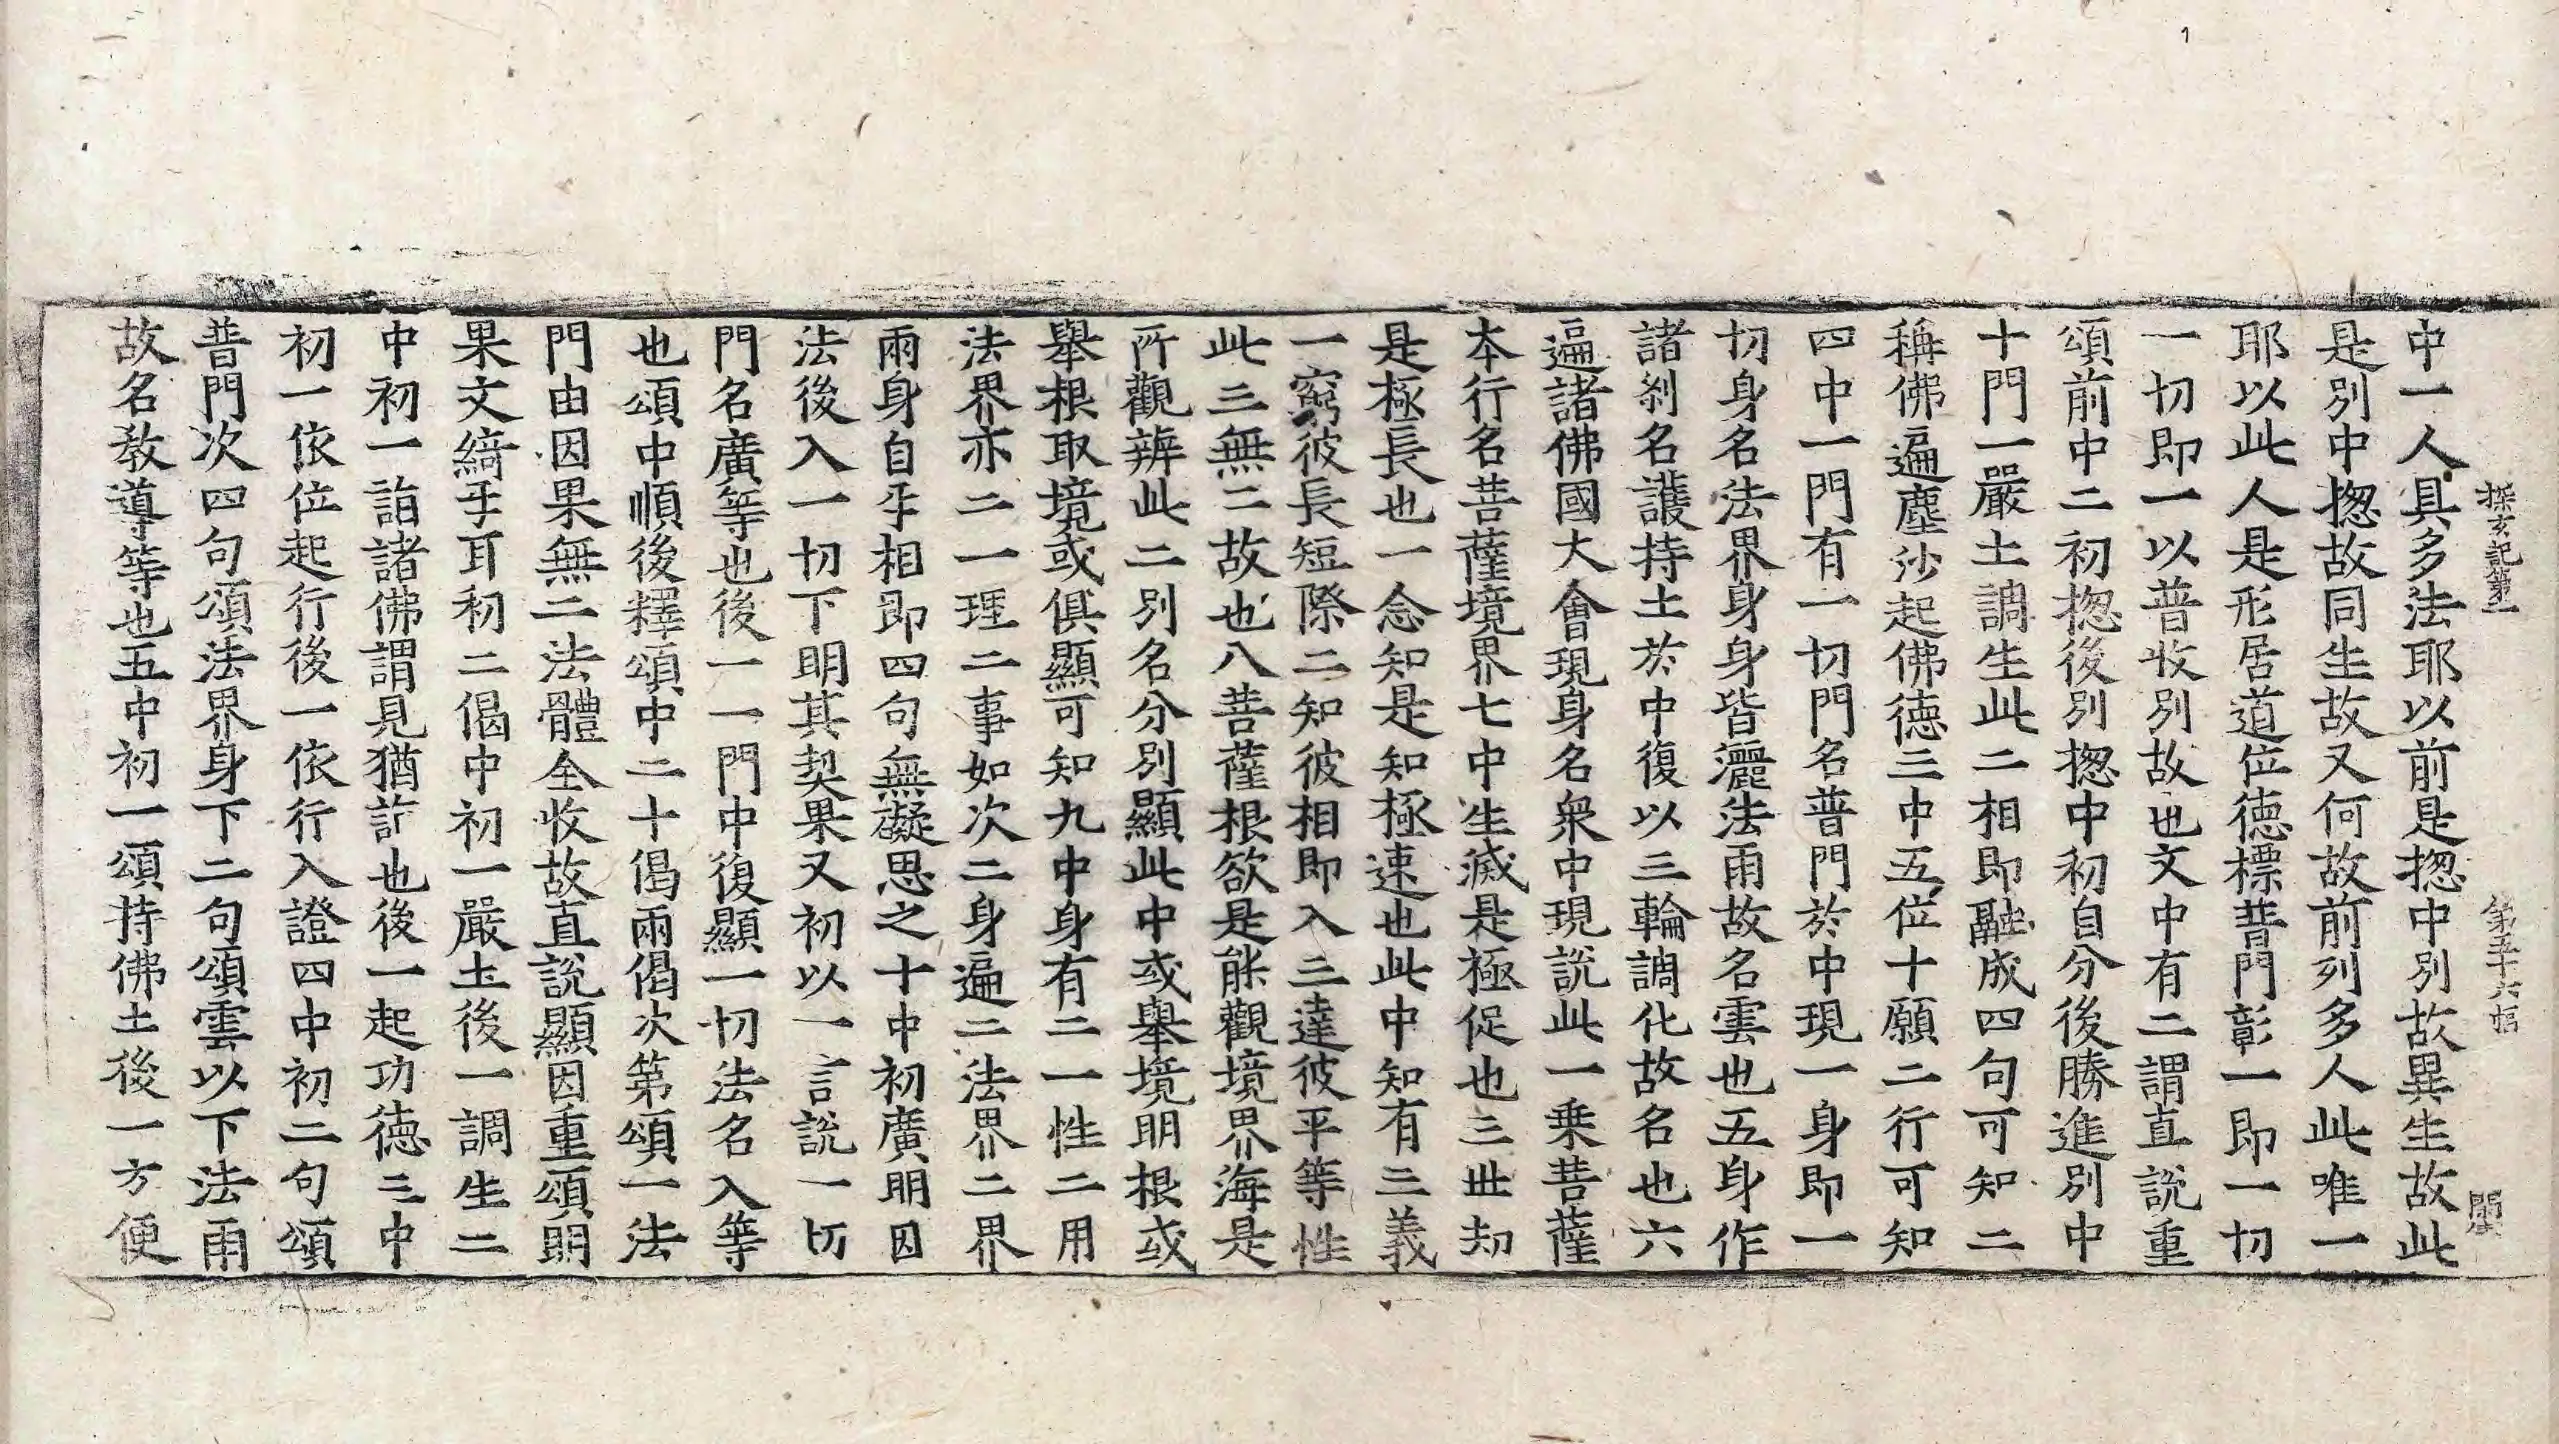 探玄記第二 第五十六幅 闕
中一人具多法耶以前是揔中別故異生故此
是別中揔故同生故又何故前列多人此唯一
耶以此人是形居道位德標普門彰一即一切
一切即一以普收別故也文中有二謂直說重
頌前中二初揔後別揔中初自分後勝進別中
十門一嚴土調生此二相即融成四句可知二
稱佛遍塵沙起佛德三中五位十願二行可知
四中一門有一切門名普門於中現一身即一
切身名法界身身皆灑法雨故名雲也五身作
諸剎名護持土於中復以三輪調化故名也六
遍諸佛國大會現身名衆中現說此一乗菩薩
本行名菩薩境界七中生滅是極促也三世劫
是極長也一念知是知極速也此中知有三義
一窮彼長短際二知彼相即入三達彼平等性
此三無二故也八菩薩根欲是能觀境界海是
所觀辨此二別名分別顯此中或舉境明根或
舉根取境或俱顯可知九中身有二一性二用
法界亦二一理二事如次二身遍二法界二界
兩身自乎相即四句無礙思之十中初廣明因
法後入一切下明其契果又初以一言說一切
門名廣等也後一一門中復顯一切法名入等
也頌中順後釋頌中二十偈兩偈次第頌一法
門由因果無二法體全收故直說顯因重頌明
果文綺乎耳初二偈中初一嚴土後一調生二
中初一詣諸佛謂見猶詣也後一起功德三中
初一依位起行後一依行入證四中初二句頌
普門次四句頌法界身下二句頌雲以下法雨
故名教導等也五中初一頌持佛土後一方便